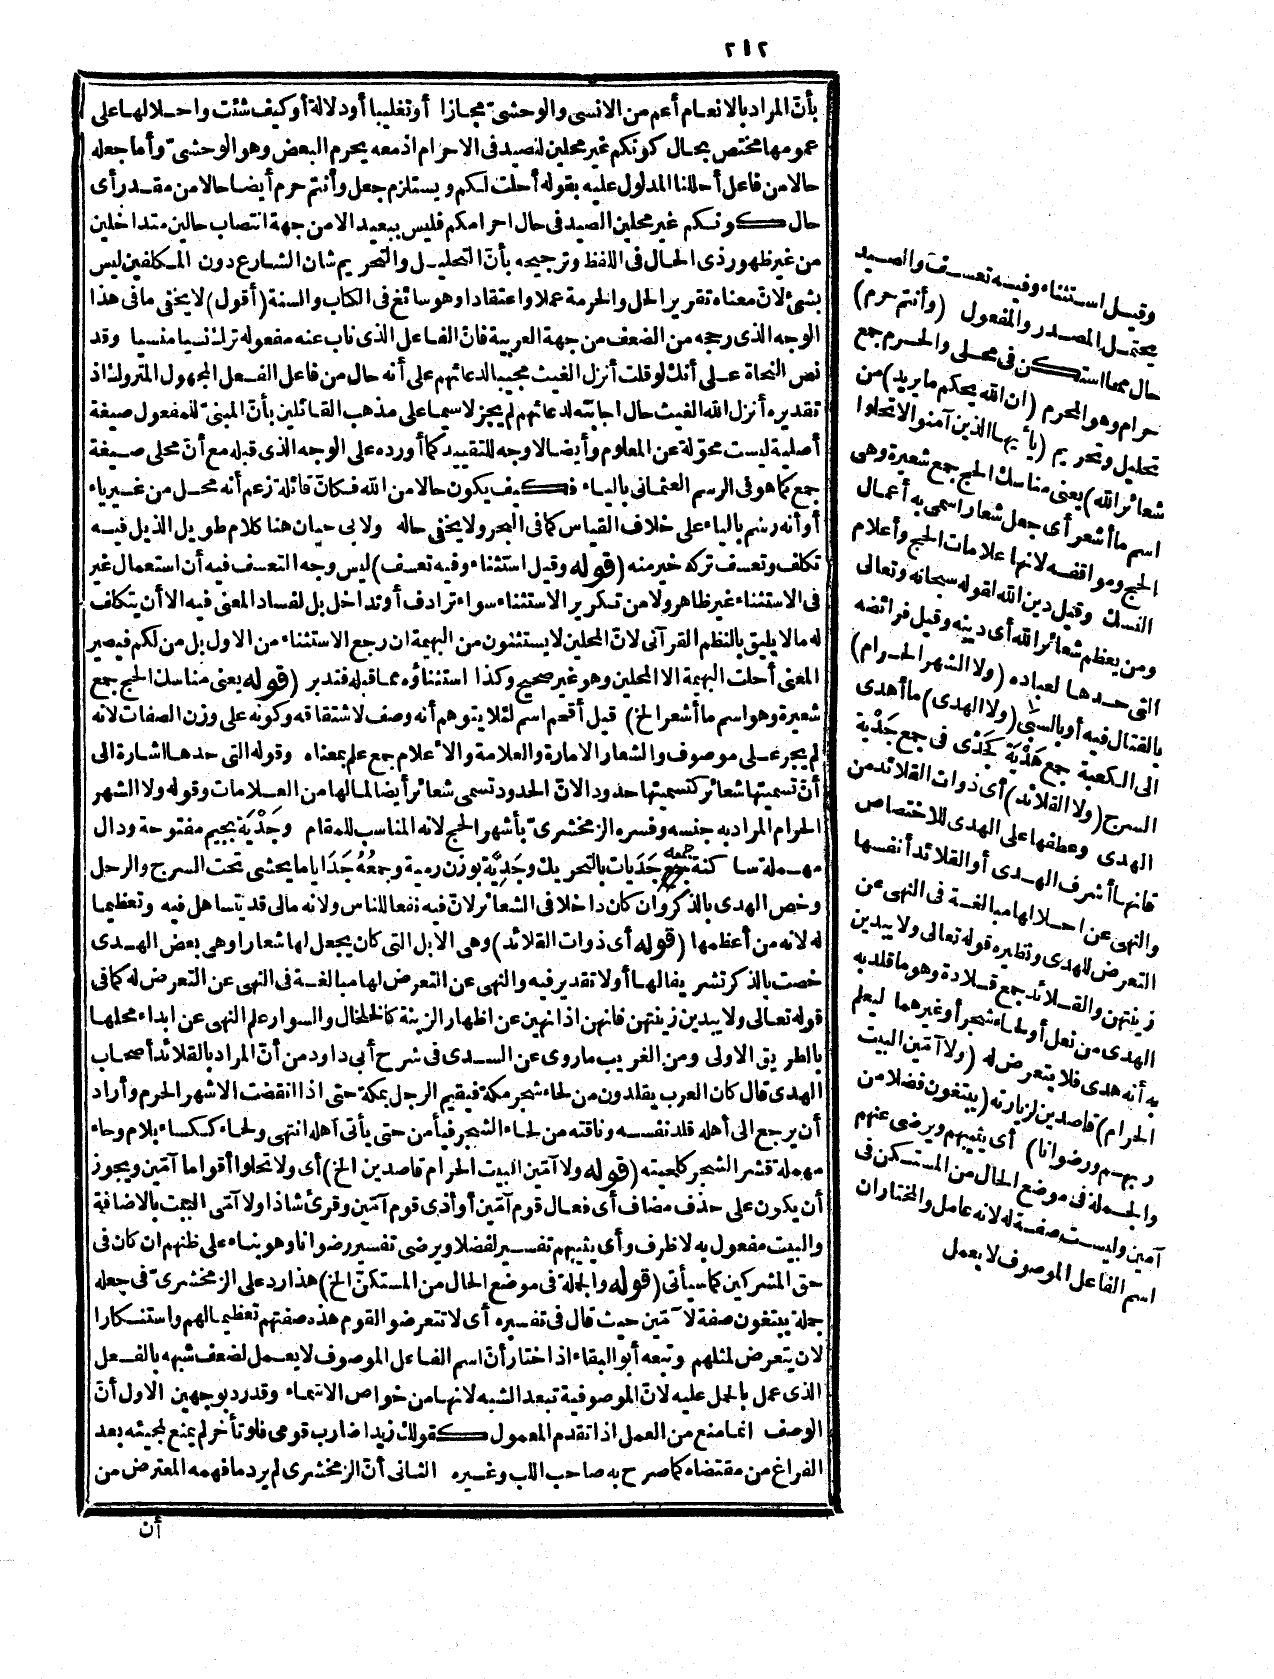 ٢١٢
بأنّ المراد بالانعام أعم من الانسى والوحشىّ مجازا أو تغليبا أو دلالة أو كيف شئت واحلالها على
عمومها مختص بحال كونكم غير محلين لصيد فى الاحرام اذ معه يحرم البعض وهو الوحشىّ وأما جعله
حالا من فاعل أحللنا المدلول عليه بقوله أحلت لكم ويستلزم جعل وأنتم حرم أيضا حالا من مقدر أى
حال كونكم غير محلين الصيد فى حال احرامكم فليس ببعيد الا من جهة انتصاب حالين متداخلين
من غير ظهور ذى الحال فى اللفظ وترجيحه بأنّ التحليل والتحريم شان الشارع دون المكلفين ليس
بشئ لانّ معناه تقرير الحل والحرمة عملا واعتقادا وهو سائغ فى الكتاب والسنة (أقول) لا يخفى ما فى هذا
الوجه الذى رجحه من الضعف من جهة العربية فانّ الفاعل الذى ناب عنه مفعوله ترك نسيا منسيا وقد
نص النحاة على أنك لو قلت أنزل الغيث مجيبا لدعائهم على أنه حال من فاعل الفعل المجهول المتروك اذ
تقديره أنزل الله الغيث حال اجابته لدعائهم لم يجز لا سيما على مذهب القائلين بأنّ المبنىّ للمفعول صيغة
أصلية ليست محوّلة عن المعلوم وأيضا لا وجه للتقييد كما أورده على الوجه الذى قبله مع أنّ محلى صيغة
جمع كما هو فى الرسم العثمانى بالياء فكيف يكون حالا من الله فكانّ قائله زعم أنه محل من غير ياء
أو أنه رسم بالياء على خلاف القياس كما فى البحر ولا يخفى حاله ولابى حيان هنا كلام طويل الذيل فيه
تكلف وتعسف تركه خير منه (قوله وقيل استثناء وفيه تعسف) ليس وجه التعسف فيه أن استعمال غير
فى الاستثناء غير ظاهر ولا من تكرير الاستثناء سواء ترادف أو تداخل بل لفساد المعنى فيه الا أن يتكلف
له ما لا يليق بالنظم القرآنى لانّ المحلين لا يستثنون من البهيمة ان رجع الاستثناء من الاول بل من لكم فيصير
المعنى أحلت البهيمة الا المحلين وهو غير صحيح وكذا استثناؤه مما قبله فتدبر (قوله يعنى مناسك الحج جمع
شعيرة وهو اسم ما أشعر الخ) قيل أقحم اسم لئلا يتوهم أنه وصف لاشتقاقه وكونه على وزن الصفات لانه
لم يجر على موصوف والشعار الامارة والعلامة والأعلام جمع علم بمعناه وقوله التى حدها اشارة الى
أنّ تسميتها شعائر كتسميتها حدودا لانّ الحدود تسمى شعائر أيضا لمالها من العلامات وقوله ولا الشهر
الحرام المراد به جنسه وفسره الزمخشرىّ بأشهر الحج لانه المناسب للمقام وجَدْيَة بجيم مفتوحة ودال
مهملة ساكنة جمعه جَدَيات بالتحريك وجَدِيَّة بوزن رمية وجمعُهُ جَدَايا ما يحشى تحت السرج والرحل
وخص الهدى بالذكر وان كان داخلا فى الشعائر لانّ فيه نفعا للناس ولانه مالى قد يتساهل فيه وتعظيما
له لانه من أعظمها (قوله أى ذوات القلائد) وهى الابل التى كان يجعل لها شعارا وهى بعض الهدى
خصت بالذكر تشريفا لها أو لا تقدير فيه والنهى عن التعرض لها مبالغة فى النهى عن التعرض له كما فى
قوله تعالى ولا يبدين زينتهن فانهن اذا نهين عن اظهار الزينة كالخلخال والسوار علم النهى عن ابداء محلها
بالطريق الاولى ومن الغريب ما روى عن السدى فى شرح أبى داود من أنّ المراد بالقلائد أصحاب
الهدى قال كان العرب يقلدون من لحاء شجر مكة فيقيم الرجل بمكة حتى اذا انقضت الاشهر الحرم وأراد
أن يرجع الى أهله قلد نفسه وناقته من لحاء الشجر فيأمن حتى يأتى أهله انتهى ولحاء ككساء بلام وحاء
مهملة قشر الشجر كلحيته (قوله ولا آمّين البيت الحرام قاصدين الخ) أى ولا تحلوا أقواما آمّين ويجوز
أن يكون على حذف مضاف أى قتال قوم آمّين أو أذى قوم آمّين وقرئ شاذا ولا آمّى البيت بالاضافة
والبيت مفعول به لا ظرف وأى يثيبهم تفسير لفضلا ويرضى تفسير رضوانا وهو بناء على ظنهم ان كان فى
حق المشركين كما سيأتى (قوله والجملة فى موضع الحال من المستكنّ الخ) هذا رد على الزمخشرىّ فى جعله
جملة يبتغون صفة لآمّين حيث قال فى تفسيره أى لا تتعرضوا لقوم هذه صفتهم تعظيما لهم واستنكارا
لان يتعرض لمثلهم وتبعه أبو البقاء اذ اختار أنّ اسم الفاعل الموصوف لا يعمل لضعف شبهه بالفعل
الذى عمل بالحمل عليه لانّ الموصوفية تبعد الشبه لانها من خواص الاسماء وقد رد بوجهين الاول أنّ
الوصف انما منع من العمل اذا تقدم المعمول كقولك زيدا ضارب قومى فلو تأخر لم يمنع لمجيئه بعد
الفراغ من مقتضاه كما صرح به صاحب اللب وغيره الثانى أنّ الزمخشرى لم يرد ما فهمه المعترض من
أن
وقيل استثناء وفيه تعسف والصيد
يحتمل المصدر والمفعول (وأنتم حرم)
حال مما استكن فى محلى والحرم جمع
حرام وهو المحرم (ان الله يحكم ما يريد) من
تحليل وتحريم (يأيها الذين آمنوا لا تحلوا
شعائر الله) يعنى مناسك الحج جمع شعيرة وهى
اسم ما أشعر أى جعل شعارا سمى به أعمال
الحج ومواقفه لانها علامات الحج وأعلام
النسك وقيل دين الله لقوله سبحانه وتعالى
ومن يعظم شعائر الله أى دينه وقيل فرائضه
التى حدها لعباده (ولا الشهر الحرام)
بالقتال فيه أو بالسبى (ولا الهدى) ما أهدى
الى الكعبة جمع هَدْيَة كجَدْى فى جمع جَدْية
السرج (ولا القلائد) أى ذوات القلائد من
الهدى وعطفها على الهدى للاختصاص
فانها أشرف الهدى أو القلائد أنفسها
والنهى عن احلالها مبالغة فى النهى عن
التعرض للهدى ونظيره قوله تعالى ولا يبدين
زينتهن والقلائد جمع قلادة وهو ما قلد به
الهدى من نعل أو لحاء شجر أو غيرهما ليعلم
به أنه هدى فلا يتعرض له (ولا آمّين البيت
الحرام) قاصدين لزيارته (يبتغون فضلا من
ربهم ورضوانا) أى يثيبهم ويرضى عنهم
والجملة فى موضع الحال من المستكن فى
آمين وليست صفة له لانه عامل والمختار ان
اسم الفاعل الموصوف لا يعمل